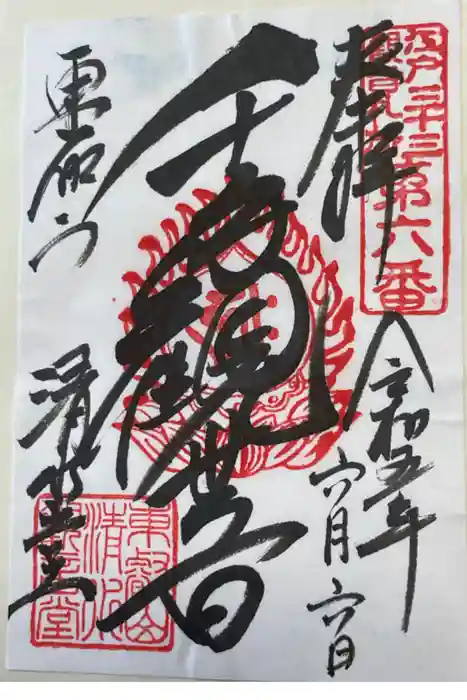 江戸三十三
観音
第六番
奉拝
令和五年
六月六日
千手観世音
東叡山
清水堂
東叡山
清水
観音堂